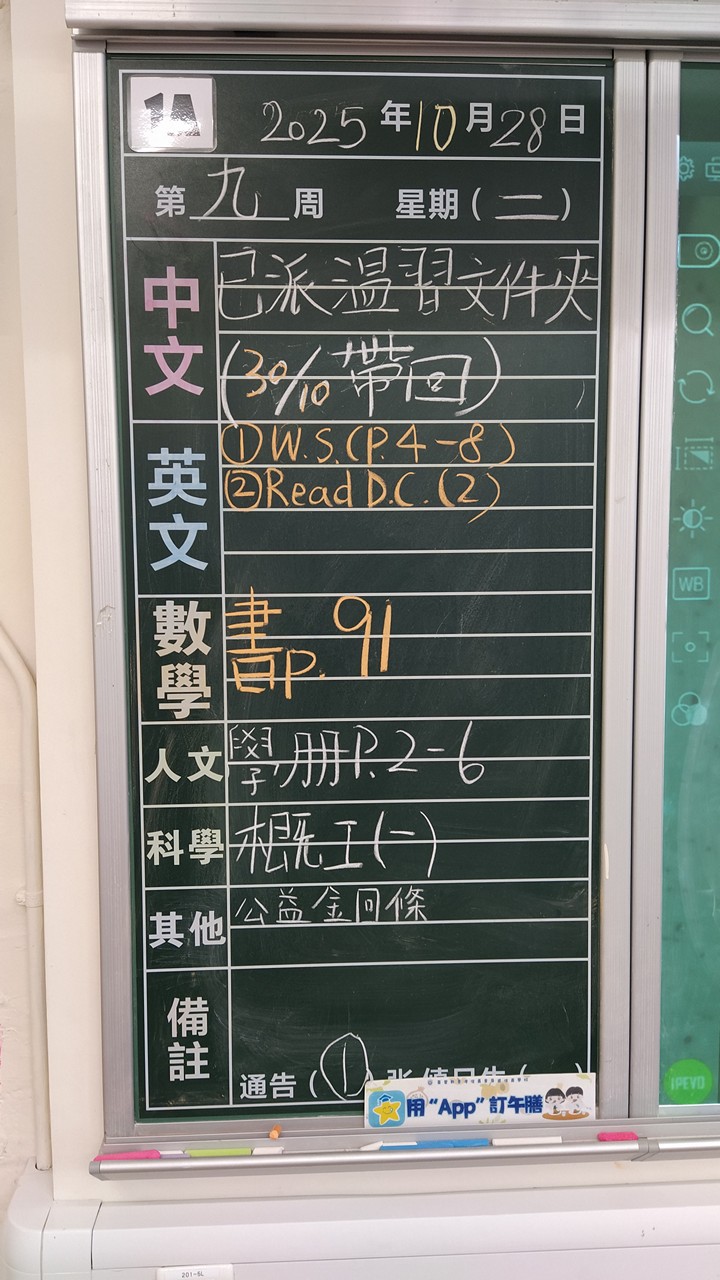 1A 2025年10月28日
第九周 星期(二)
中文 已派溫習文件夾
(30/10 帶回)
英文 ①W.S.(P.4-8)
②Read D.C.(2)
數學 書P.91
人文 學册P.2-6
科學 概工(一)
其他 公益金回條
備註
通告(1)张
用“App”訂午膳
WB
iPEVO
201-6L